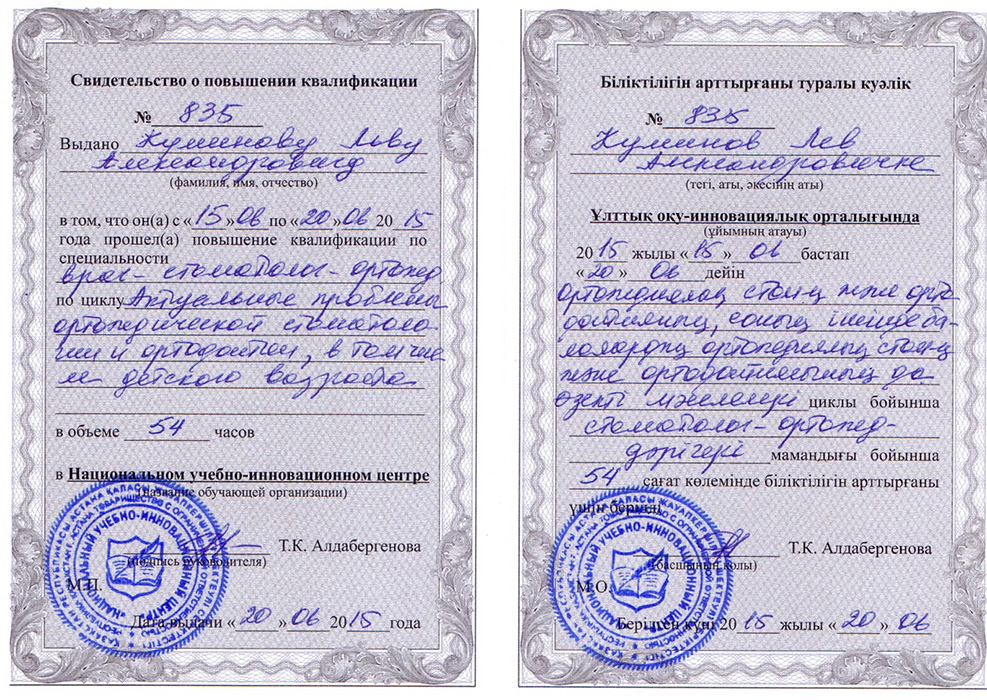 Свидетельство о повышении квалификации
№ 835
Выдано Куминову Льву
Александровичу
(фамилия, имя, отчество)
в том, что он(а) с «15» 06 по «20» 06 2015
года прошел(а) повышение квалификации по
специальности
врач-стоматолог-ортопед
по циклу Актуальные проблемы
ортопедической стоматоло-
гии и ортодонтии, в том чис-
ле детского возраста
в объеме 54 часов
в Национальном учебно-инновационном центре
(название обучающей организации)
Т.К. Алдабергенова
(подпись руководителя)
М.П.
Дата выдачи «20» 06 2015 года
"НАЦИОНАЛЬНЫЙ УЧЕБНО-ИННОВАЦИОННЫЙ ЦЕНТР"
Біліктілігін арттырғаны туралы куәлік
№ 835
Куминов Лев
Александровичке
(тегі, аты, әкесінің аты)
Ұлттық оқу-инновациялық орталығында
(ұйымның атауы)
2015 жылы «15» 06 бастап
«20» 06 дейін
және орто-
ішінде ба-
лалардың ортопедиялық
және да
өзекті мәселелері циклы бойынша
стоматолог-ортопед-
дәрігері мамандығы бойынша
54 сағат көлемінде біліктілігін арттырғаны
үшін берілді
Т.К. Алдабергенова
(басшының қолы)
М.О.
Берілген күні 2015 жылы «20» 06
"НАЦИОНАЛЬНЫЙ УЧЕБНО-ИННОВАЦИОННЫЙ ЦЕНТР"